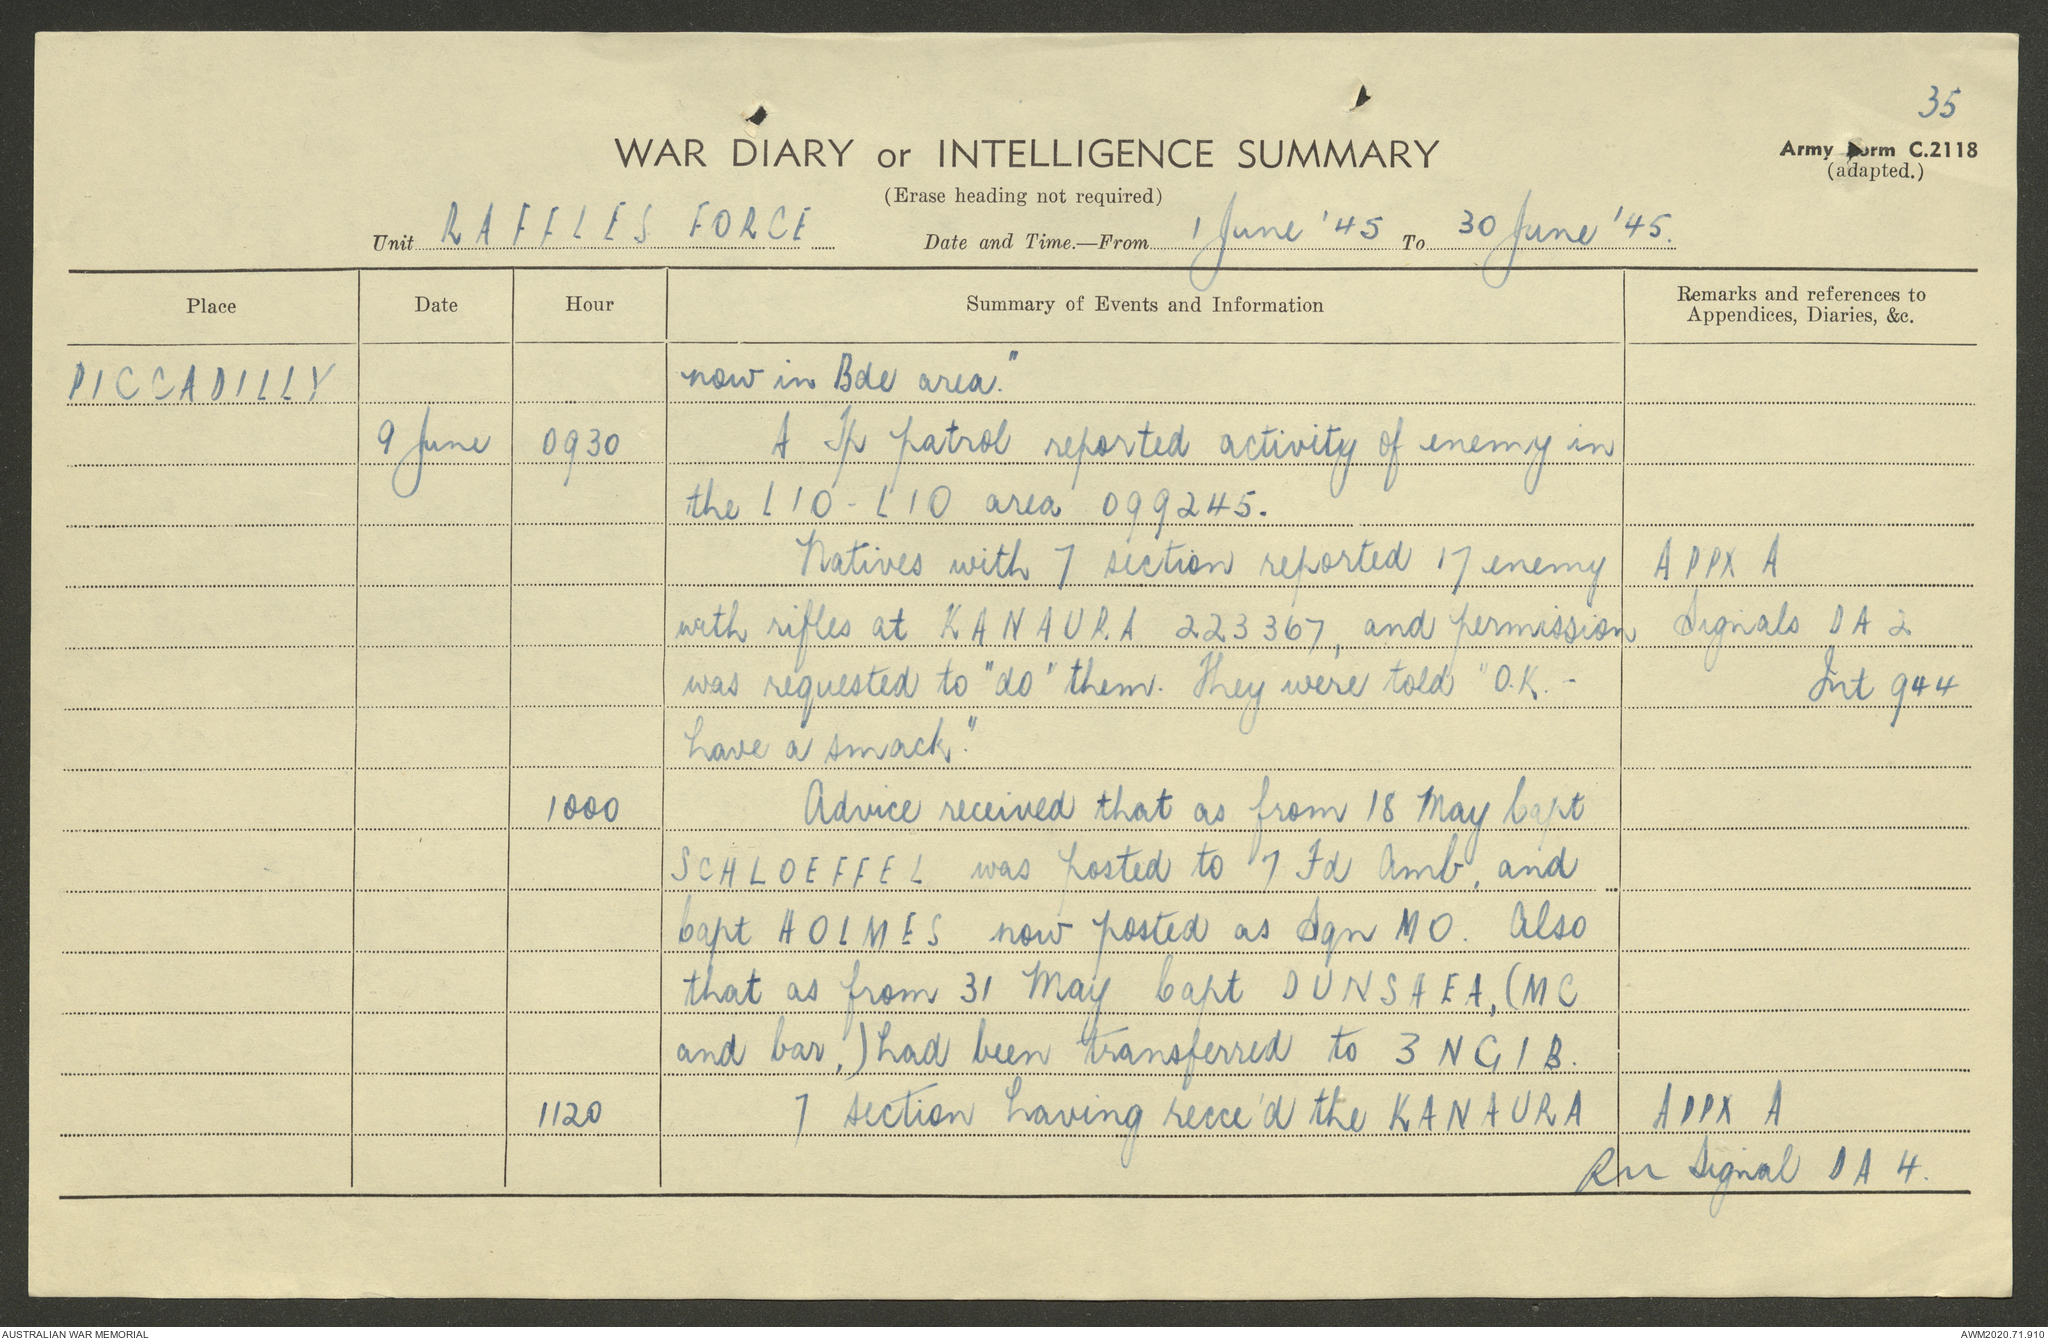 35
WAR DIARY or INTELLIGENCE SUMMARY
Army Form C.2118
(adapted.)
(Erase heading not required)
Unit RAFFLES FORCE Date and Time.—From 1 June '45 To 30 June '45.
Place Date Hour Summary of Events and Information Remarks and references to
Appendices, Diaries, &c.
PICCADILLY now in Bde area."
9 June 0930 A Tp patrol reported activity of enemy in
the LIO-LIO area 099245.
Natives with 7 section reported 17 enemy APPX A
with rifles at KANAURA 223367, and permission Signals DA 2
was requested to "do" them. They were told "O.K. - Int 944
have a smack."
1000 Advice received that as from 18 May Capt
SCHLOEFFEL was posted to 7 Fd Amb, and
Capt HOLMES now posted as Sqn MO. Also
that as from 31 May Capt DUNSAEA, (MC
and bar,) had been transferred to 3 NGIB.
1120 7 section having recce'd the KANAURA APPX A
Signal DA 4.
AUSTRALIAN WAR MEMORIAL AWM2020.71.910